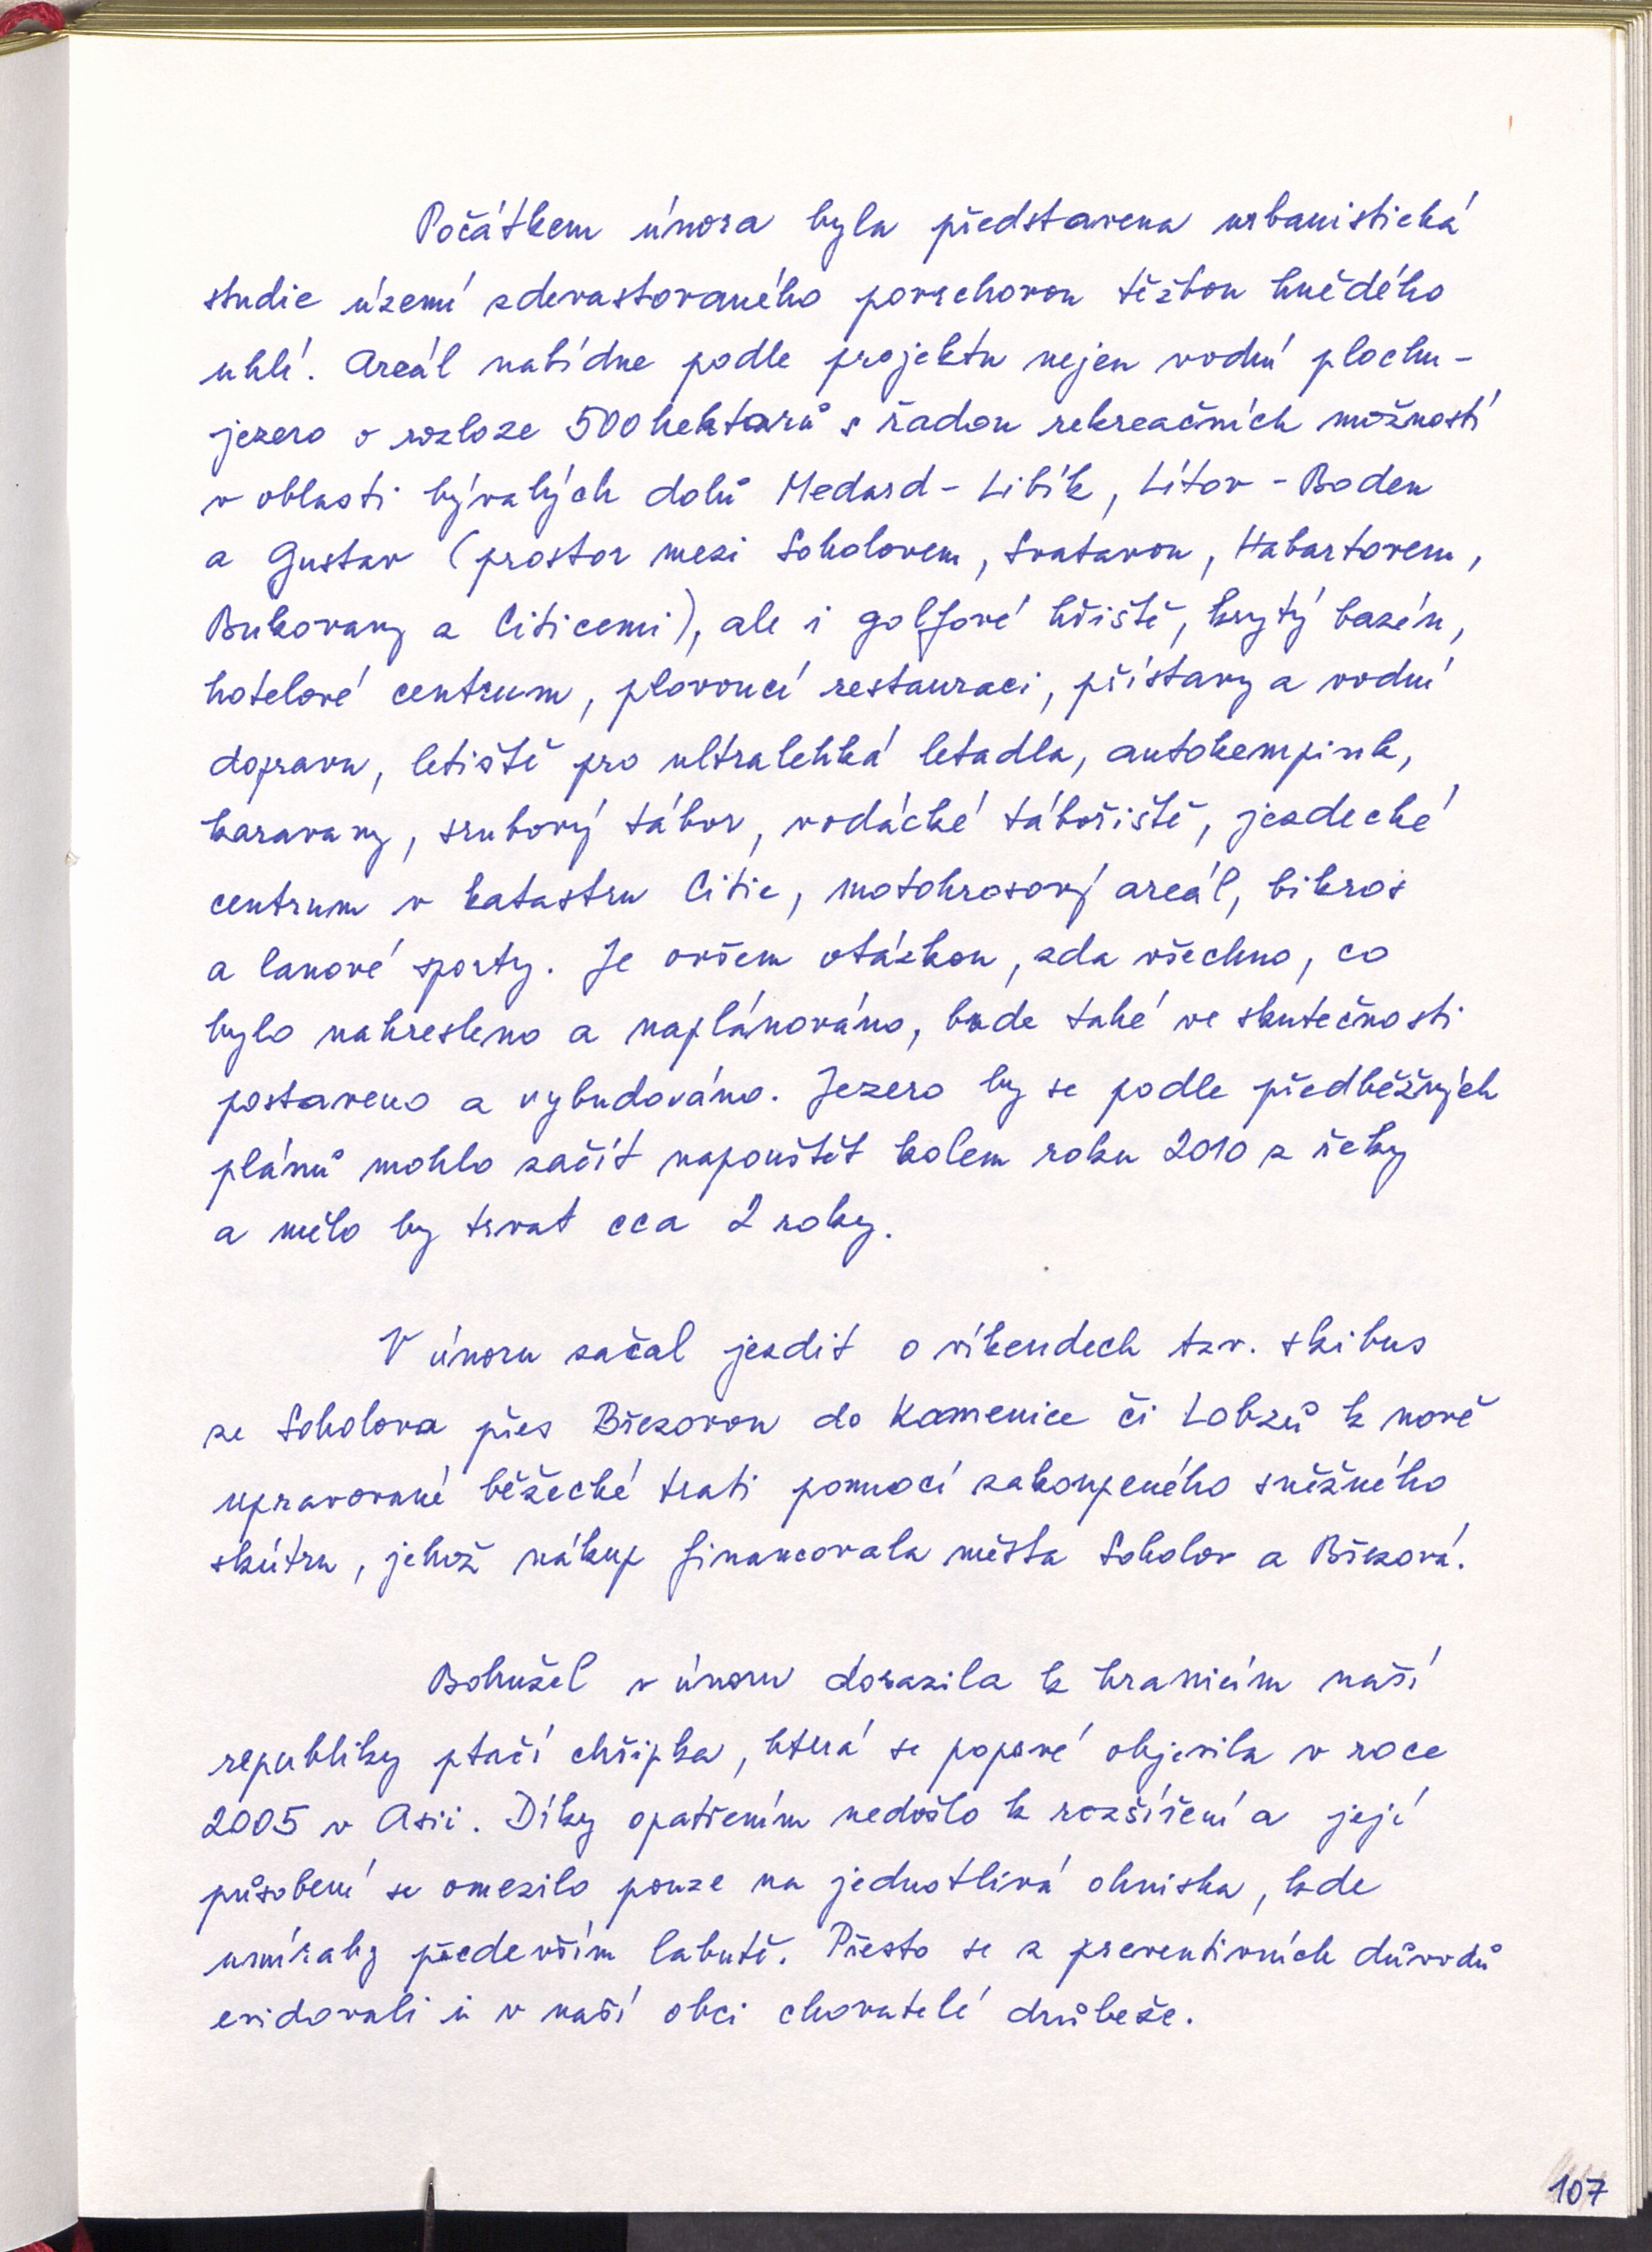 Počátkem února byla představena urbanistická
studie území zdevastovaného povrchovou těžbou hnědého
uhlí. Areál nabídne podle projektu nejen vodní plochu -
jezero o rozloze 500 hektarů s řadou rekreačních možností
v oblasti bývalých dolů Medard - Libík, Lítov - Boden
a Gustav (prostor mezi Sokolovem, Svatavou, Habartovem,
Bukovany a Citicemi), ale i golfové hřiště, krytý bazén,
hotelové centrum, plovoucí restauraci, přístavy a vodní
dopravu, letiště pro ultralehká letadla, autokempink,
karavany, srubový tábor, vodácké tábořiště, jezdecké
centrum v katastru Citic, motokrosový areál, bikros
a lanové sporty. Je ovšem otázkou, zda všechno, co
bylo nakresleno a naplánováno, bude také ve skutečnosti
postaveno a vybudováno. Jezero by se podle předběžných
plánů mohlo začít napouštět kolem roku 2010 z řeky
a mělo by trvat cca 2 roky.
V únoru začal jezdit o víkendech tzv. skibus
ze Sokolova přes Březovou do Kamenice či Lobzů k nově
upravované běžecké trati pomocí zakoupeného sněžného
skútru, jehož nákup financovala města Sokolov a Březová.
Bohužel v únoru dorazila k hranicím naší
republiky ptačí chřipka, která se poprvé objevila v roce
2005 v Asii. Díky opatřením nedošlo k rozšíření a její
působení se omezilo pouze na jednotlivá ohniska, kde
umíraly především labutě. Přesto se z preventivních důvodů
evidovali i v naší obci chovatelé drůbeže.
107